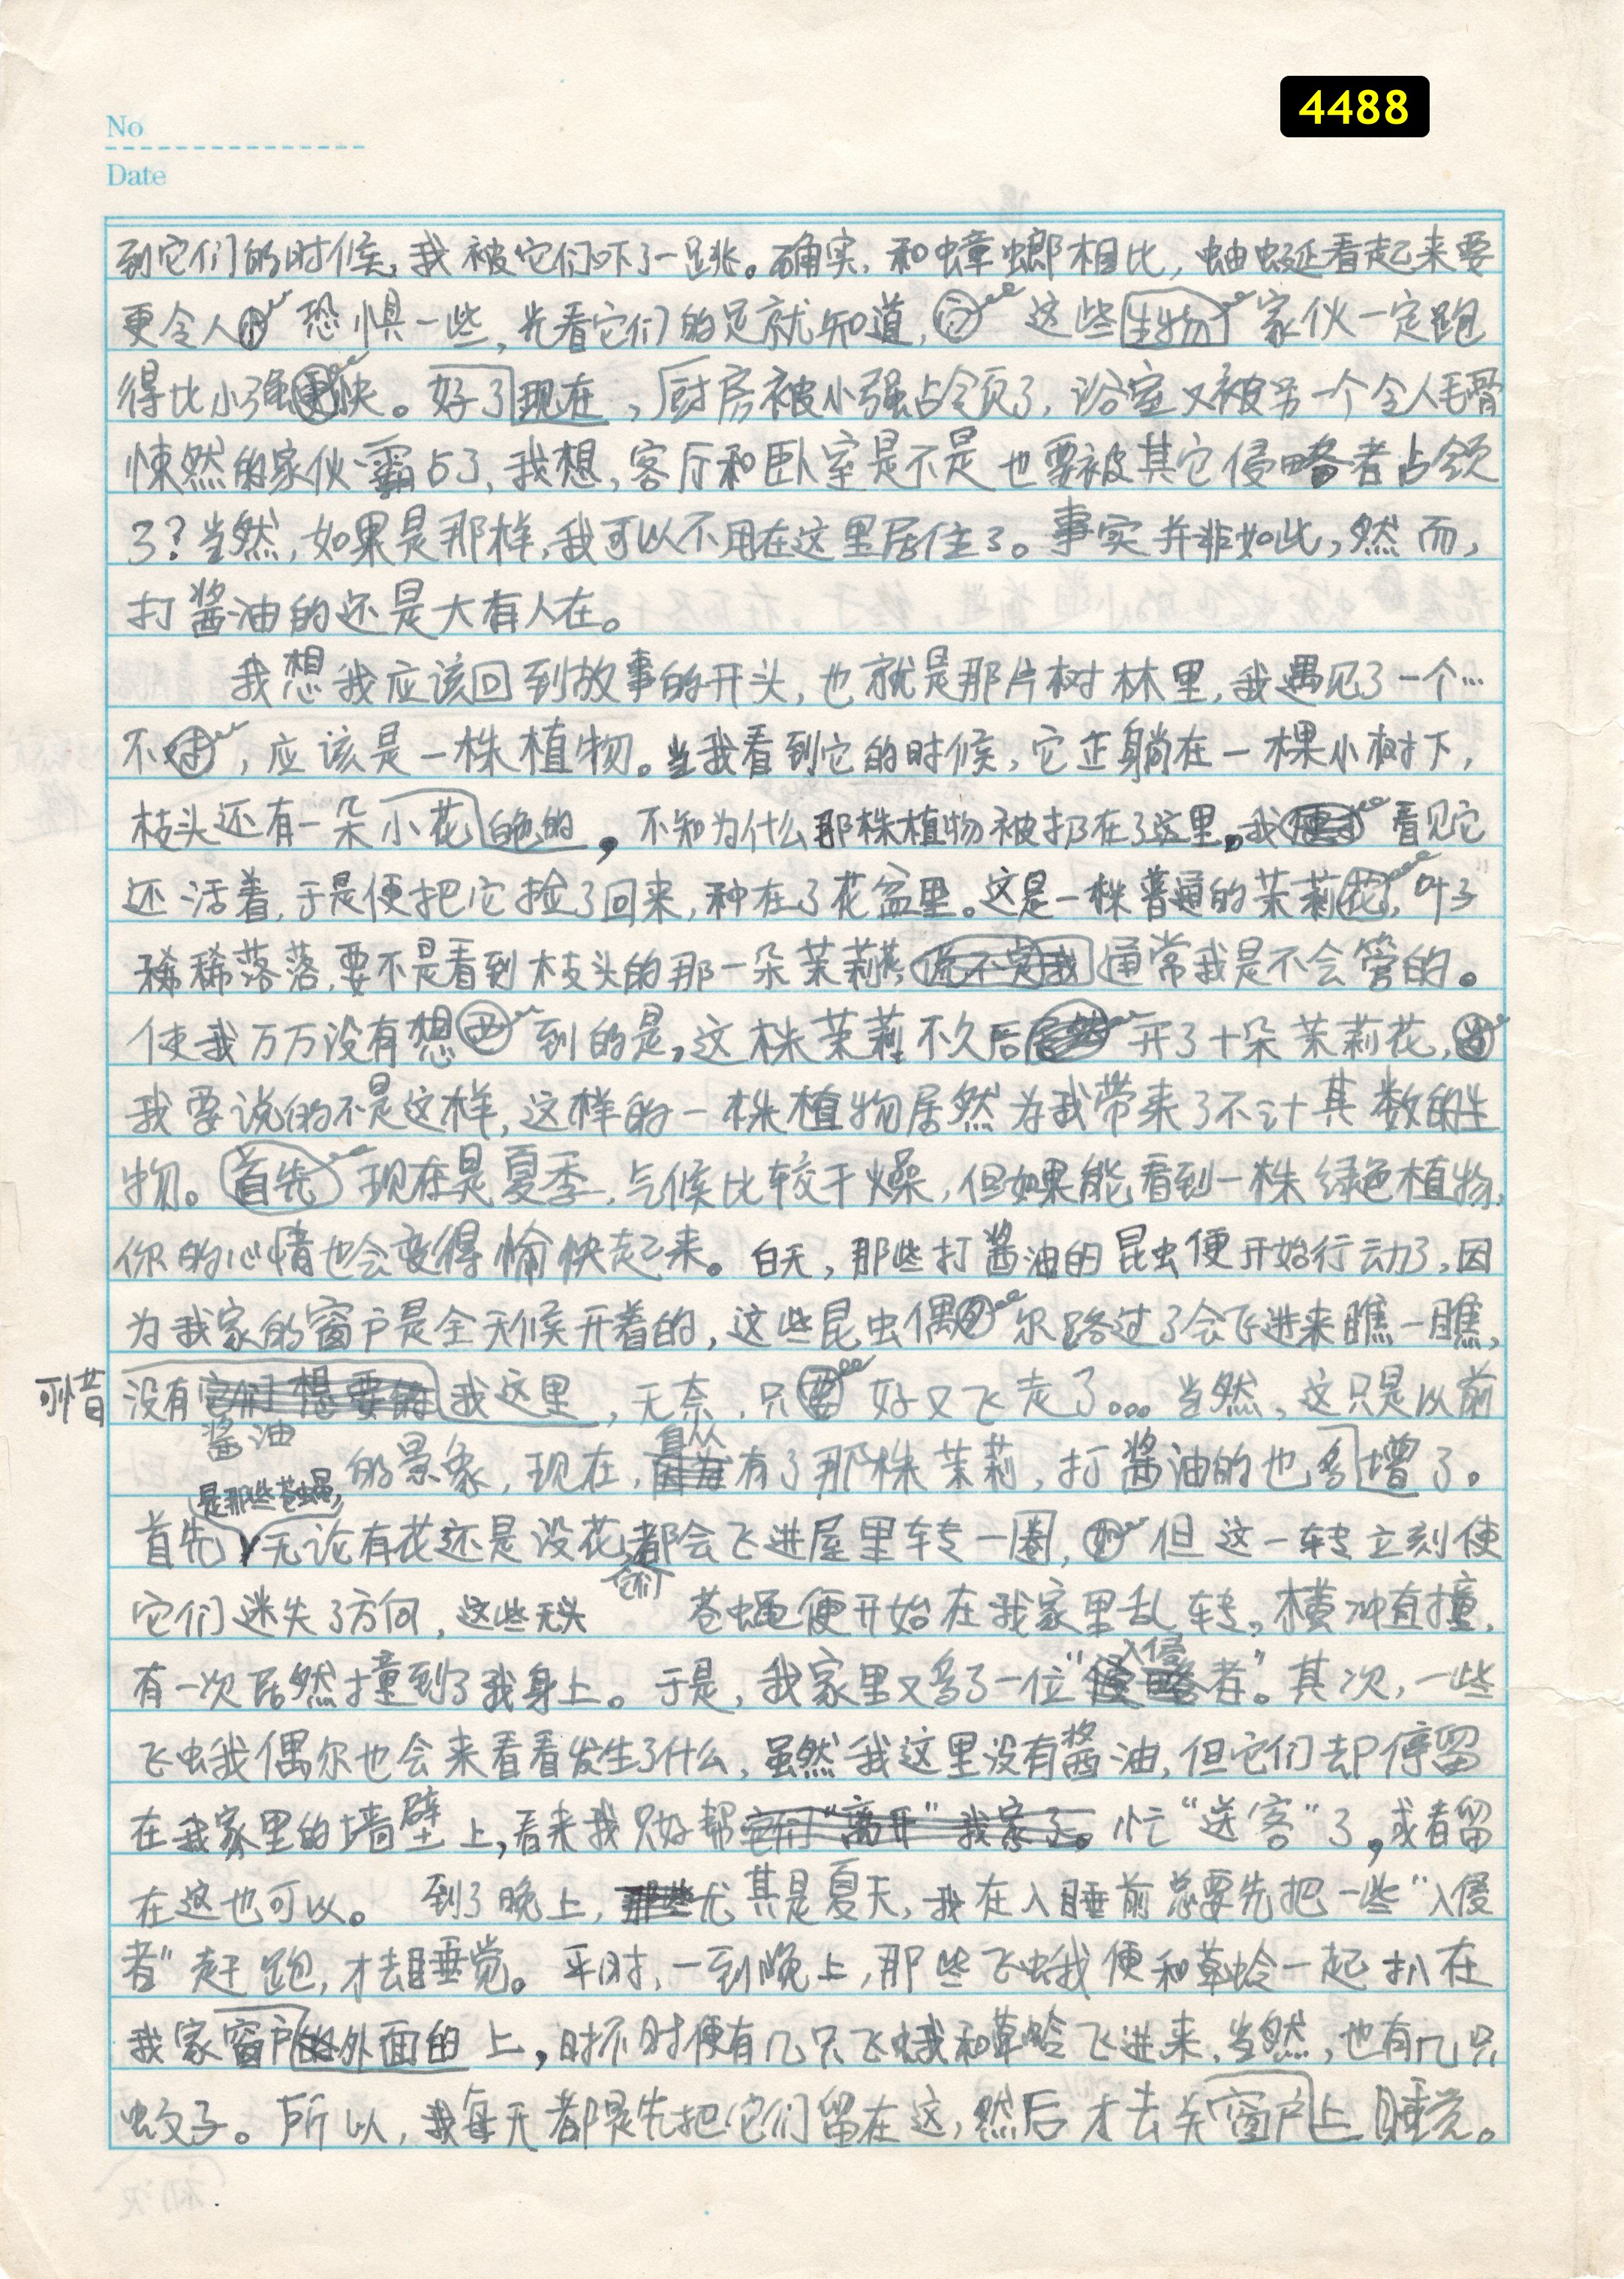 4488
No
Date
到它们的时候，我被它们吓了一跳。确实，和蟑螂相比，蚰蜒看起来要
更令人恐惧一些，光看它们的足就知道，这些生物家伙一定跑
得比小强更快。好了现在，厨房被小强占领了，浴室又被另一个令人毛骨
悚然的家伙霸占了，我想，客厅和卧室是不是也要被其它侵略者占领
了？当然，如果是那样，我可以不用在这里居住了。事实并非如此，然而，
打酱油的还是大有人在。
我想我应该回到故事的开头，也就是那片树林里，我遇见了一个…
不对，应该是一株植物。当我看到它的时候，它正躺在一棵小树下，
枝头还有一朵小花白色的，不知为什么那株植物被扔在了这里。我看见它
还活着，于是便把它捡了回来，种在了花盆里。这是一株普通的茉莉花，叶子
稀稀落落，要不是看到枝头的那一朵茉莉花，说不定我通常我是不会管的。
使我万万没有想到的是，这株茉莉不久后开了十朵茉莉花，
我要说的不是这样，这样的一株植物居然为我带来了不计其数的生
物。首先现在是夏季，气候比较干燥，但如果能看到一株绿色植物，
你的心情也会变得愉快起来。白天，那些打酱油的昆虫便开始行动了，因
为我家的窗户是全天候开着的，这些昆虫偶尔路过了会飞进来瞧一瞧，
可惜没有它们想要的我这里，无奈，只要好又飞走了。。。当然，这只是以前
酱油
自从
的景象，现在，因为有了那株茉莉，打酱油的也多增了。
是那些苍蝇，
首先无论有花还是没花都会飞进屋里转一圈，但这一转立刻使
它们
它们迷失了方向，这些无头苍蝇便开始在我家里乱转，横冲直撞，
入侵
有一次居然撞到了我身上。于是，我家里又多了一位“侵略者”。其次，一些
飞虫我偶尔也会来看看发生了什么，虽然我这里没有酱油，但它们却停留
在我家里的墙壁上，看来我只好帮它们“离开”我家了。忙“送客”了，或者留
在这也可以。 到了晚上，那些尤其是夏天，我在入睡前总要先把一些“入侵
者”赶跑，才去睡觉。平时，一到晚上，那些飞蛾便和草蛉一起扒在
我家窗户的外面的上，时不时便有几只飞蛾和草蛉飞进来，当然，也有几只
蚊子。所以，我每天都是先把它们留在这，然后才去关窗户上睡觉。